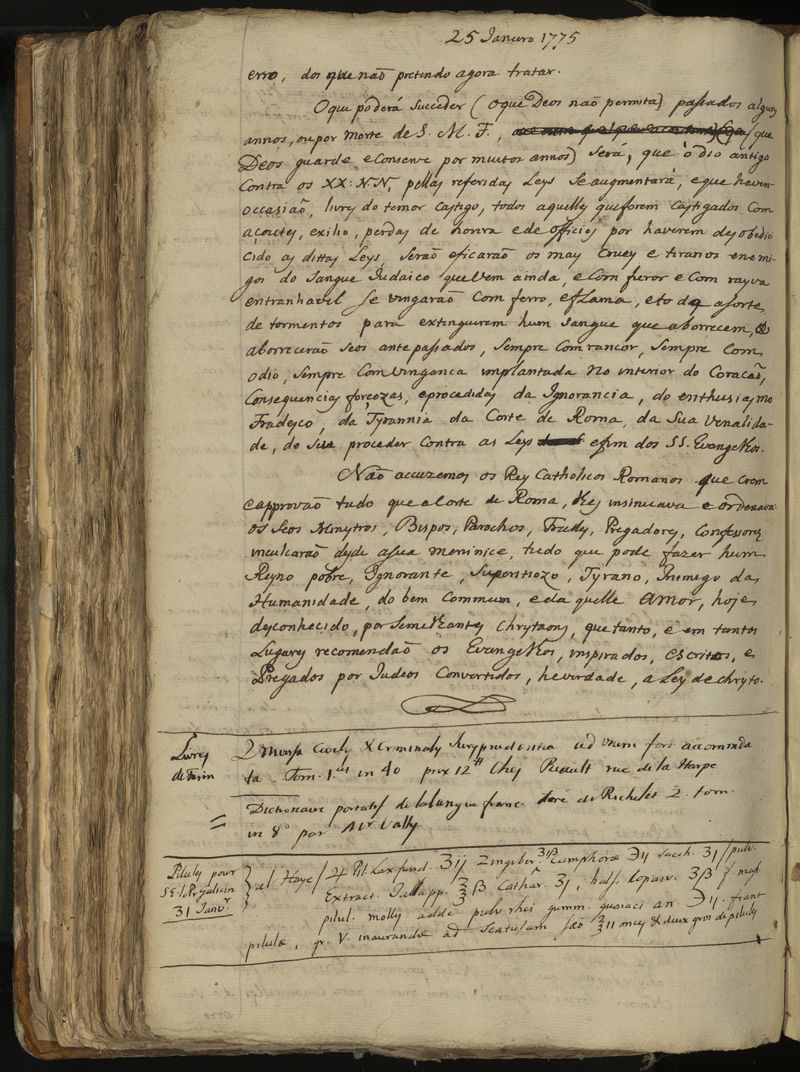 25 Janeiro 1775
erro, dos que não pretendo agora tratar.
O que poderá succeder (o que Deos não permita) passados alguns
annos, ou por morte de S. M. F., (que
Deos guarde e Conserve por muitos annos) será, que o odio antigo
Contra os XX: NN, pellas referidas Leys se augmentará, e que haven
occasião, livres do temor Castigo, todos aquelles que forem Castigados Com
açoutes, exilio, perdas de honra e de officios por haverem desobede
cido as dittas Leys, serão e ficarão os mays crueys e tiranos enemi
gos do Sangue Judaico que vem ainda, e Com furor e Com rayva
entranhavel se vingarão Com ferro, e flama, e toda a sorte
de tormentos para extinguirem hum sangue que aborrecem, e
aborrecerão seos antepassados, sempre Com rancor, sempre Com
odio, sempre Com vingança implantada no interior do Coração,
Consequencias forçozas, e procedidas da Ignorancia, do enthusiasmo
Fradesco, da Tyrannia da Corte de Roma, da sua venalida-
de, do seu proceder Contra as Leys e fim dos SS. Evangelhos.
Não accuzemos os Reys Catholicos Romanos que crem
e approvão tudo que a Corte de Roma, lhes insinuava e ordenava
os seos Ministros, Bispos, Parochos, Frades, Pregadores, Confessores
inculcarão desde a sua meninice, tudo que pode fazer hum
Reyno pobre, Ignorante, Superstiozo, Tyrano, Inimigo da
Humanidade, do bem Commum, e daquelle amor, hoje
desconhecido, por semelhantes Chrystaons, que tanto, e em tantos
Lugares recomendão os Evangelhos, inspirados, escritos, e
Pregados por Judeos Convertidos, he verdade, a Ley de Chrysto.
Livres
de Turin
Civilis & Criminalis Jurisprudentia ad usum fori accommoda
ta. Tom. 1. in 4o prix 12 Chez Ruault rue de la Harpe
= Dictionaire portatif de la langue franc. tiré de Richelet 2. tom.
in 8º par Mr Vally
Pilules pour
S. E. le Pr Galicin
31 Janvr
Pil. Zingiber. Camphoræ Sacch. pulv.
Extract. Jalapp. Cathar. bals. copaiv. f. mass
pilul. mollis adde pulv. rhei gumm. guaiaci an. fiant
pilulæ, gr. V. inaurandæ ad Scatulam são onces & deux gros de pilules